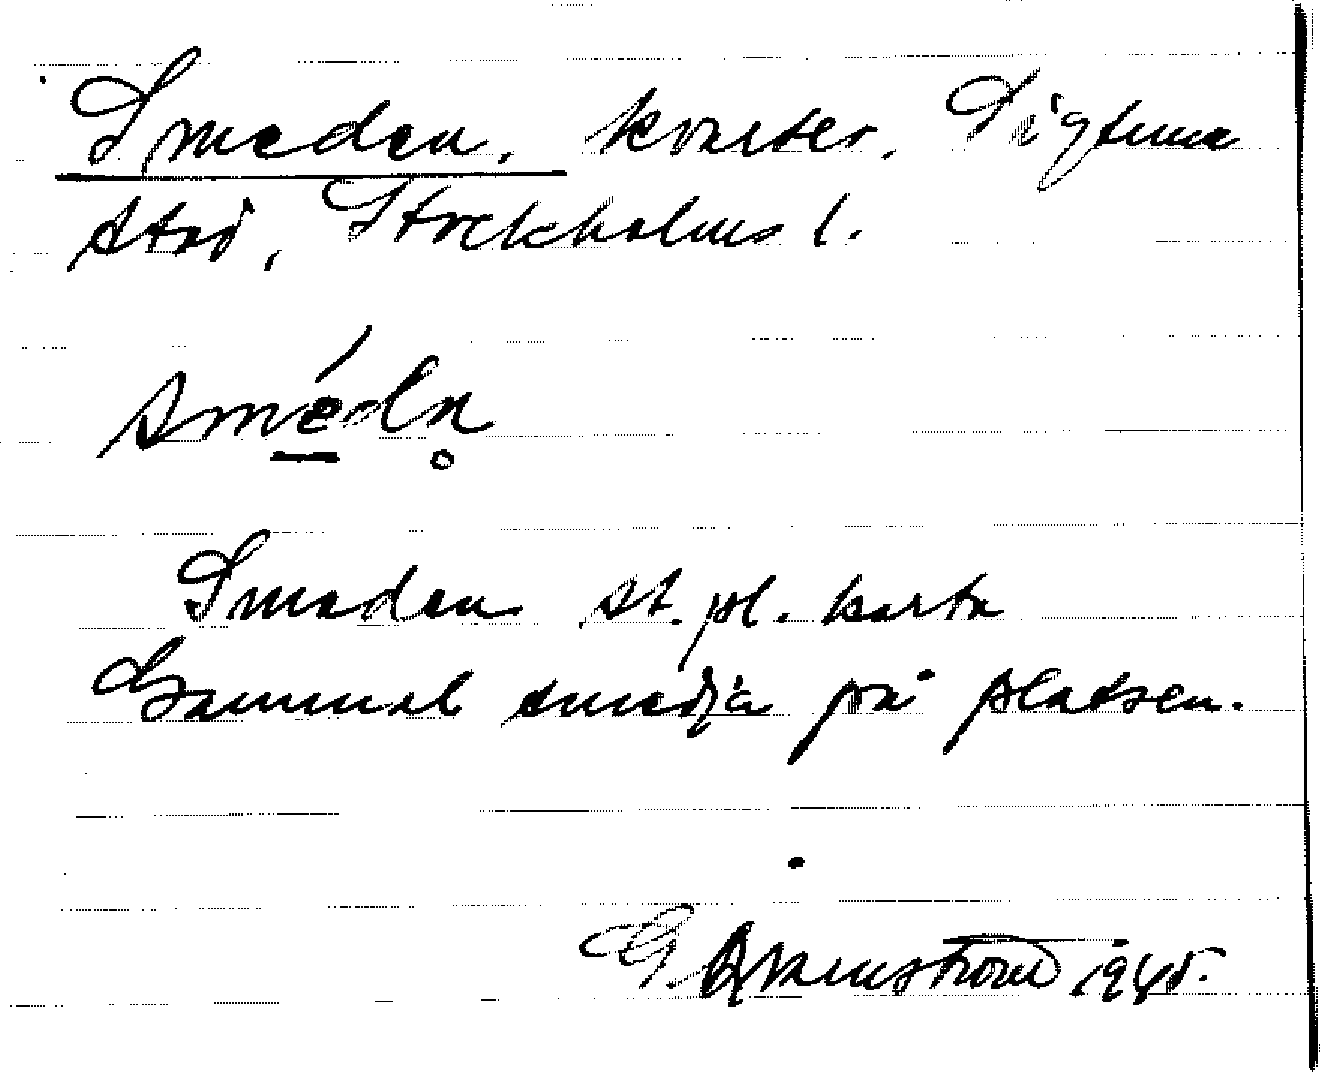 Smeden, kvarter, Sigtuna
stad, Stockholms l.
smédn̥
Smeden st. pl. karta
Gammal smedja på platsen.
G. 1945.